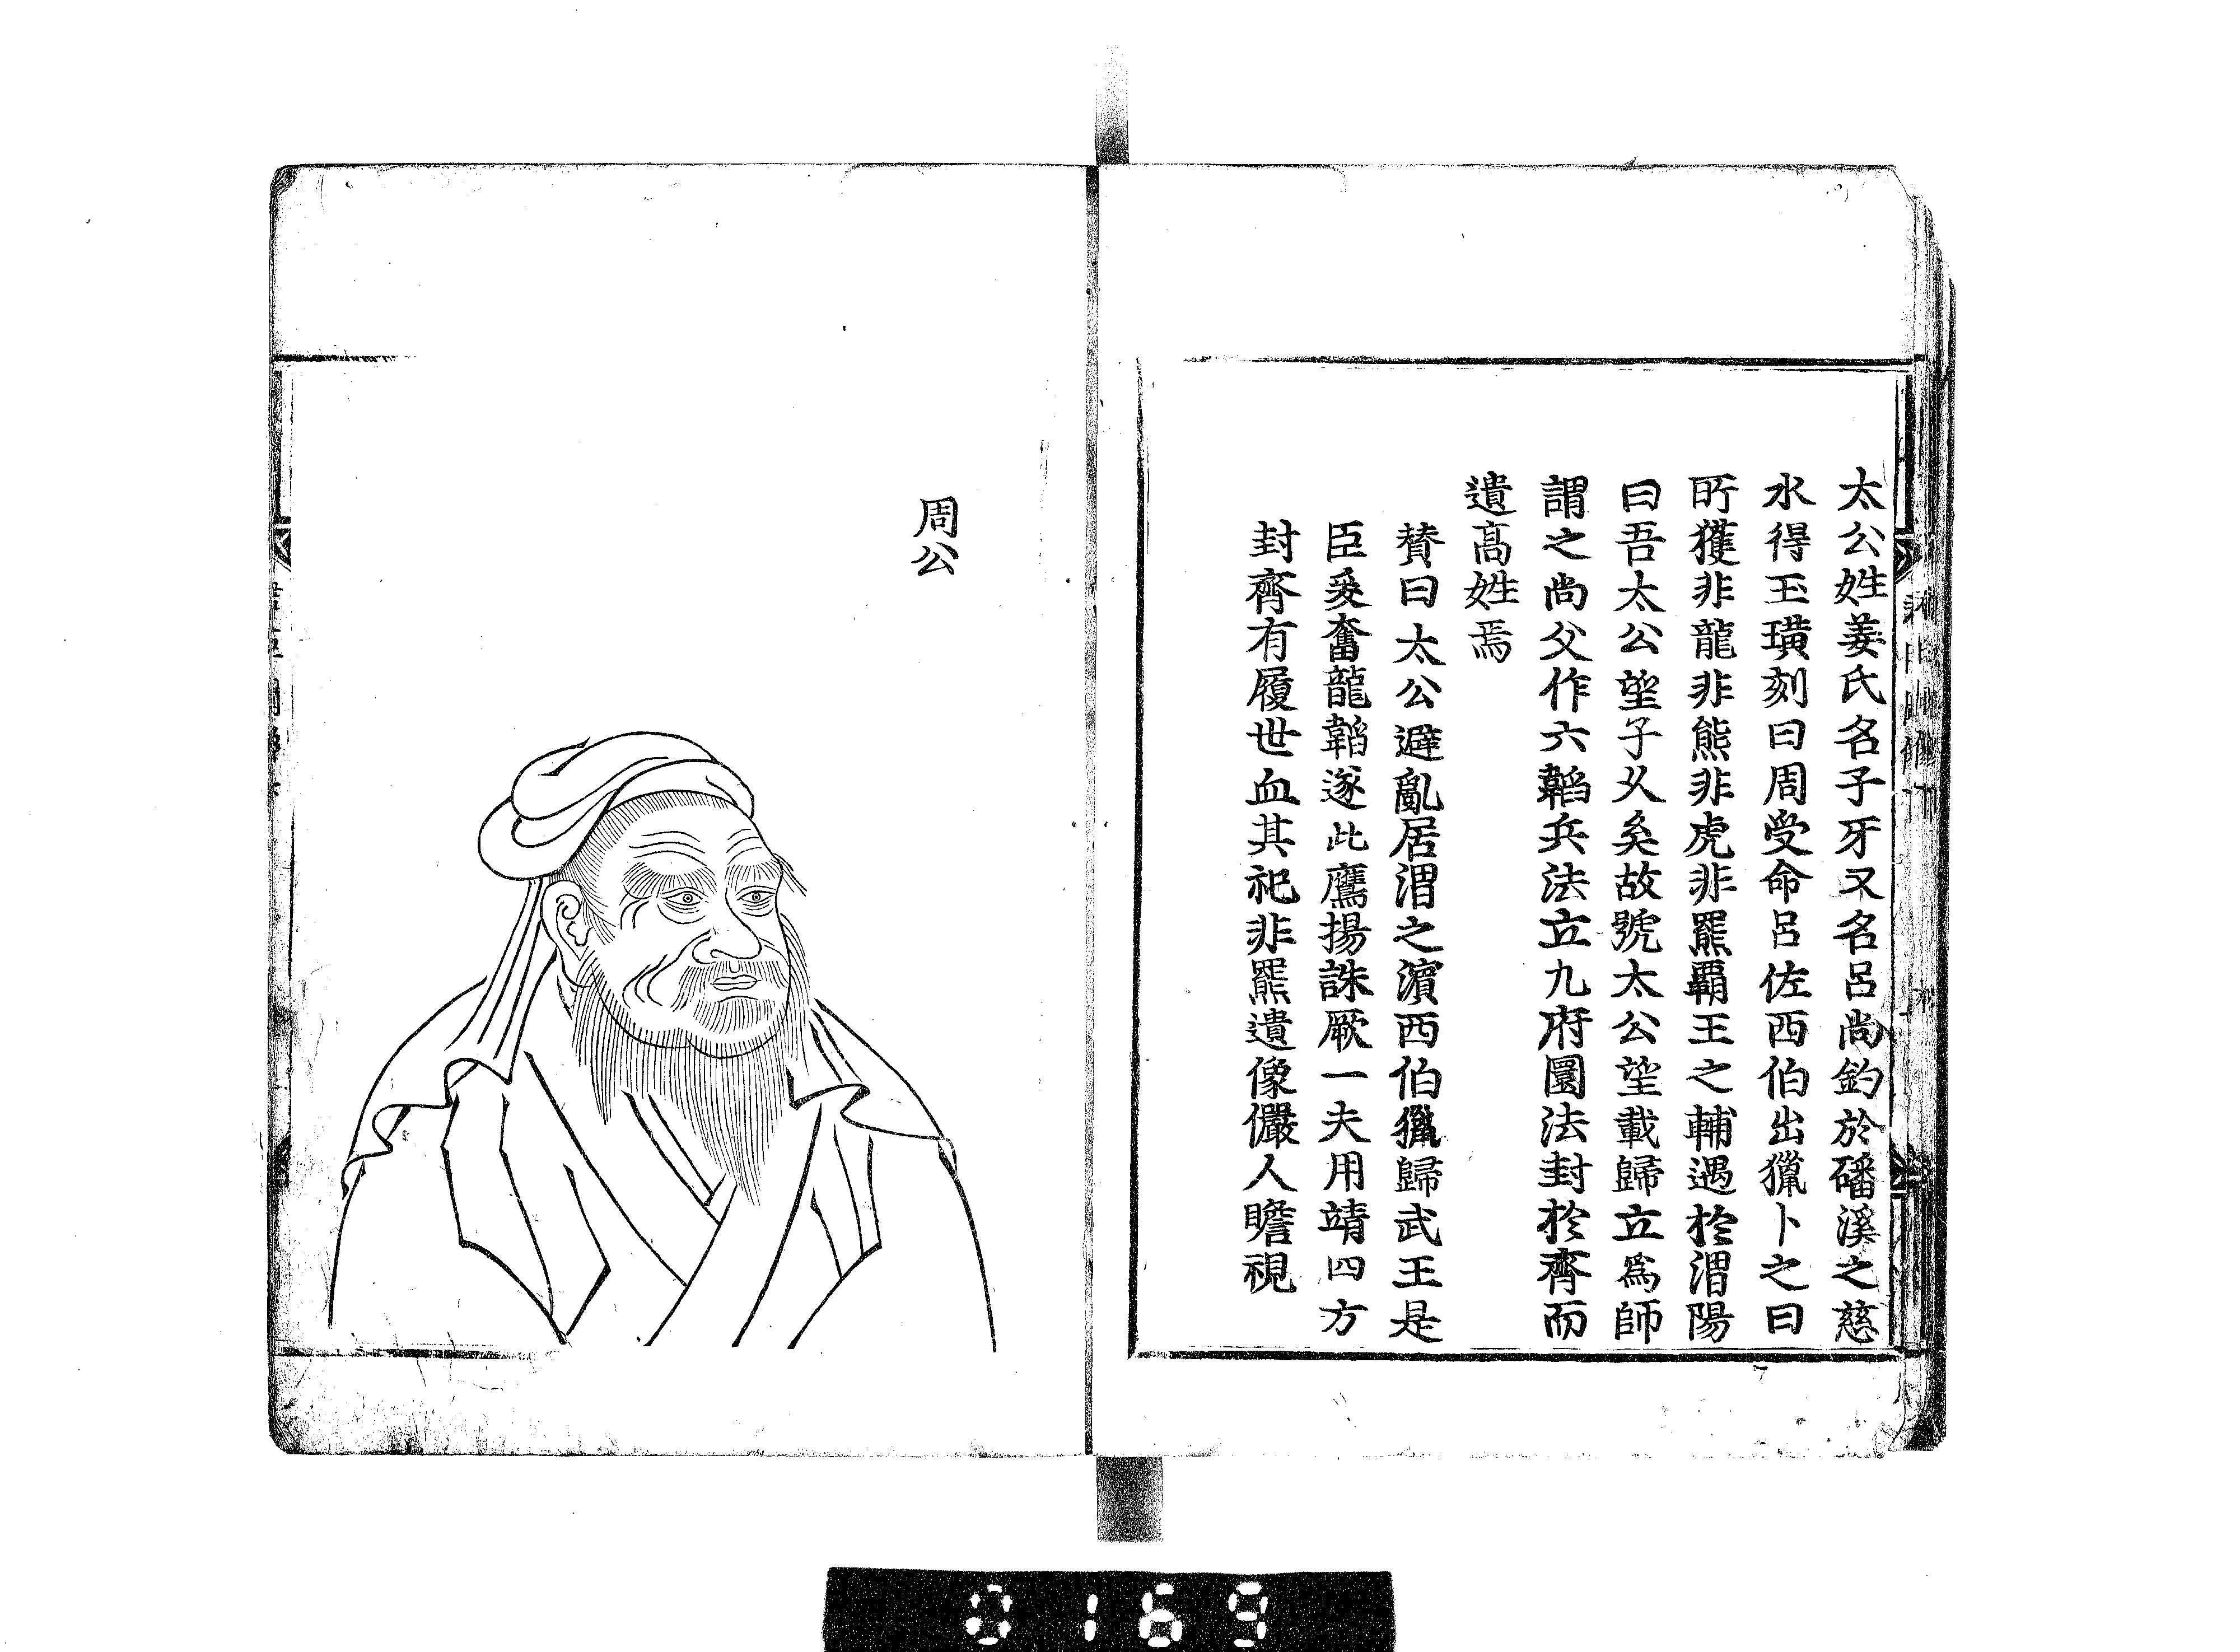 太公姓姜氏名子牙又名呂尚釣於磻溪之慈
水得玉璜刻曰周受命呂佐西伯出獵卜之曰
所獲非龍非熊非虎非羆覇王之輔遇於渭陽
曰吾太公望子乆矣故號太公望載歸立爲師
謂之尚父作六韜兵法立九府圜法封於齊而
遺高姓焉
賛曰太公避亂居渭之濵西伯獵歸武王是
臣爰奮龍韜遂此鷹揚誅厥一夫用靖四方
封齊有履世血其祀非羆遺像儼人瞻視
周公
0169